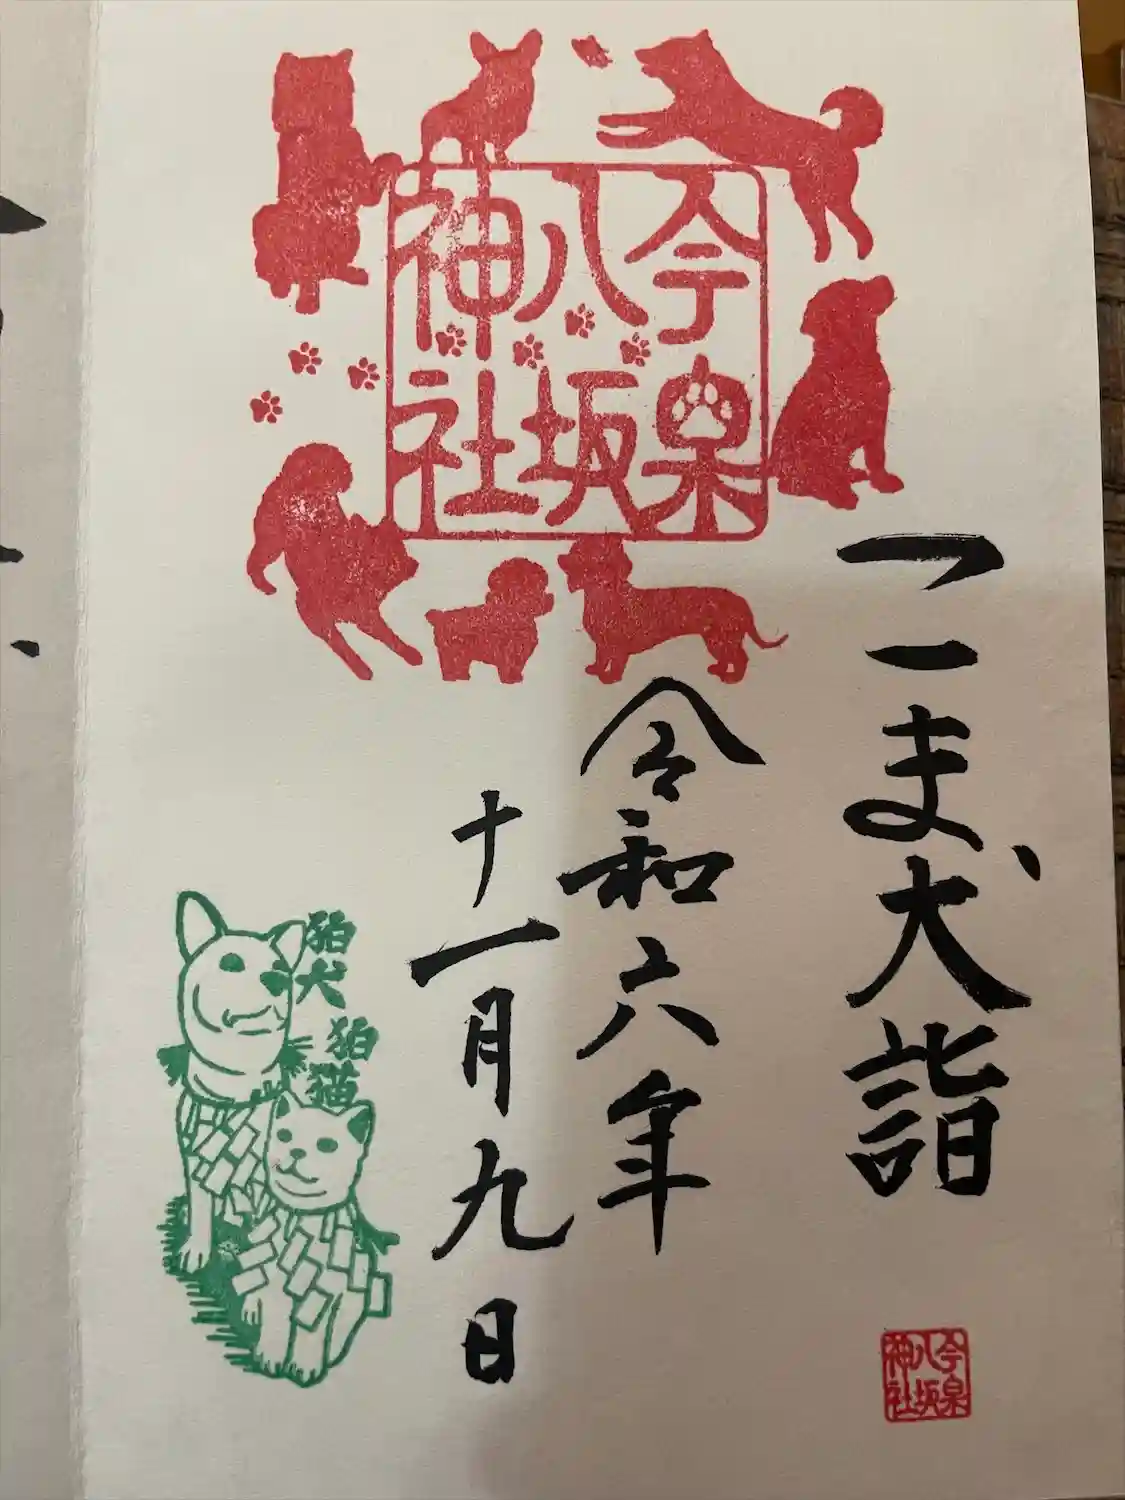 今泉
八坂
神社
こま犬詣
令和六年
十一月九日
狛犬
狛猫
今泉
八坂
神社